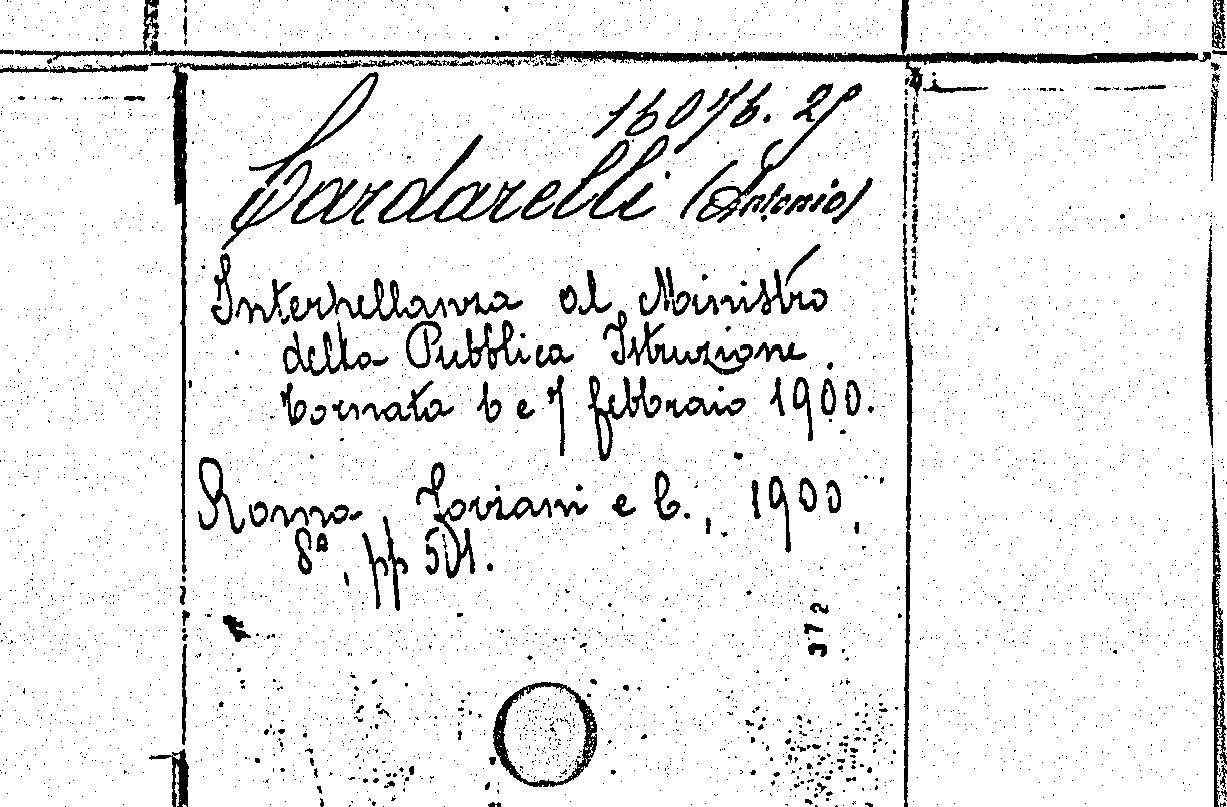 16076. 29
Cardarelli (Antonio)
Interpellanza al Ministro
della Pubblica Istruzione.
Tornata 6 e 7 febbraio 1900.
Roma, Forzani e C., 1900,
8°, pp 501.
372